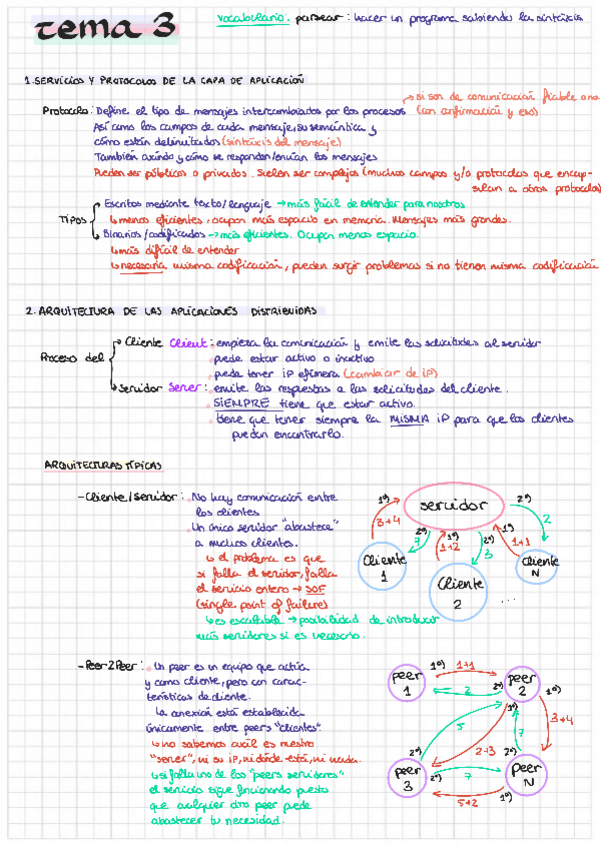 tema 3
vocabulario: parsear: hacer un programa sabiendo la sintaxis
1. SERVICIOS Y PROTOCOLOS DE LA CAPA DE APLICACIÓN
→ si son de comunicación fiable o no
Protocolo: Define el tipo de mensajes intercambiados por los procesos (con confirmación y eso)
Así como los campos de cada mensaje, su semántica y
cómo están delimitados (sintaxis del mensaje)
También cuándo y cómo se responden/envían los mensajes
Pueden ser públicos o privados. Suelen ser complejos (muchos campos y/o protocolos que encap-
sulan a otros protocolos)
Tipos
Escritos mediante texto/lenguaje → más fácil de entender para nosotros
↳ menos eficientes, ocupan más espacio en memoria. Mensajes más grandes.
Binarios/codificados → más eficientes. Ocupan menos espacio.
↳ más difícil de entender
↳ necesaria misma codificación, pueden surgir problemas si no tienen misma codificación
2. ARQUITECTURA DE LAS APLICACIONES DISTRIBUIDAS
Proceso del
Cliente Client: empieza la comunicación y emite las solicitudes al servidor
puede estar activo o inactivo
puede tener iP efímera (cambiar de iP)
servidor Server: emite las respuestas a las solicitudes del cliente.
SIEMPRE tiene que estar activo.
tiene que tener siempre la MISMA iP para que los clientes
puedan encontrarlo.
ARQUITECTURAS TÍPICAS
- Cliente/Servidor: No hay comunicación entre
los clientes
Un único servidor "abastece"
a muchos clientes.
↳ el problema es que
si falla el servidor, falla
el servicio entero → SOF
(single point of failure)
↳ es escalable → posibilidad de introducir
más servidores si es necesario.
servidor
1º) 3+4
2º) 7
1º) 1+2
2º) 3
1º) 1+1
2º) 2
Cliente 1
Cliente 2
...
Cliente N
- Peer2Peer: Un peer es un equipo que actúa
y como cliente, pero con carac-
terísticas de cliente.
La conexión está establecida
únicamente entre peers "clientes".
↳ no sabemos cuál es nuestro
"server", ni su iP, ni dónde está, ni nada.
↳ si falla uno de los "peers servidores"
el servicio sigue funcionando puesto
que cualquier otro peer puede
abastecer tu necesidad.
peer 1
1º) 1+1
2º) 2
peer 2
1º)
3+4
2º) 7
1º)
5
2+3
peer 3
2º) 7
5+2 1º)
peer N